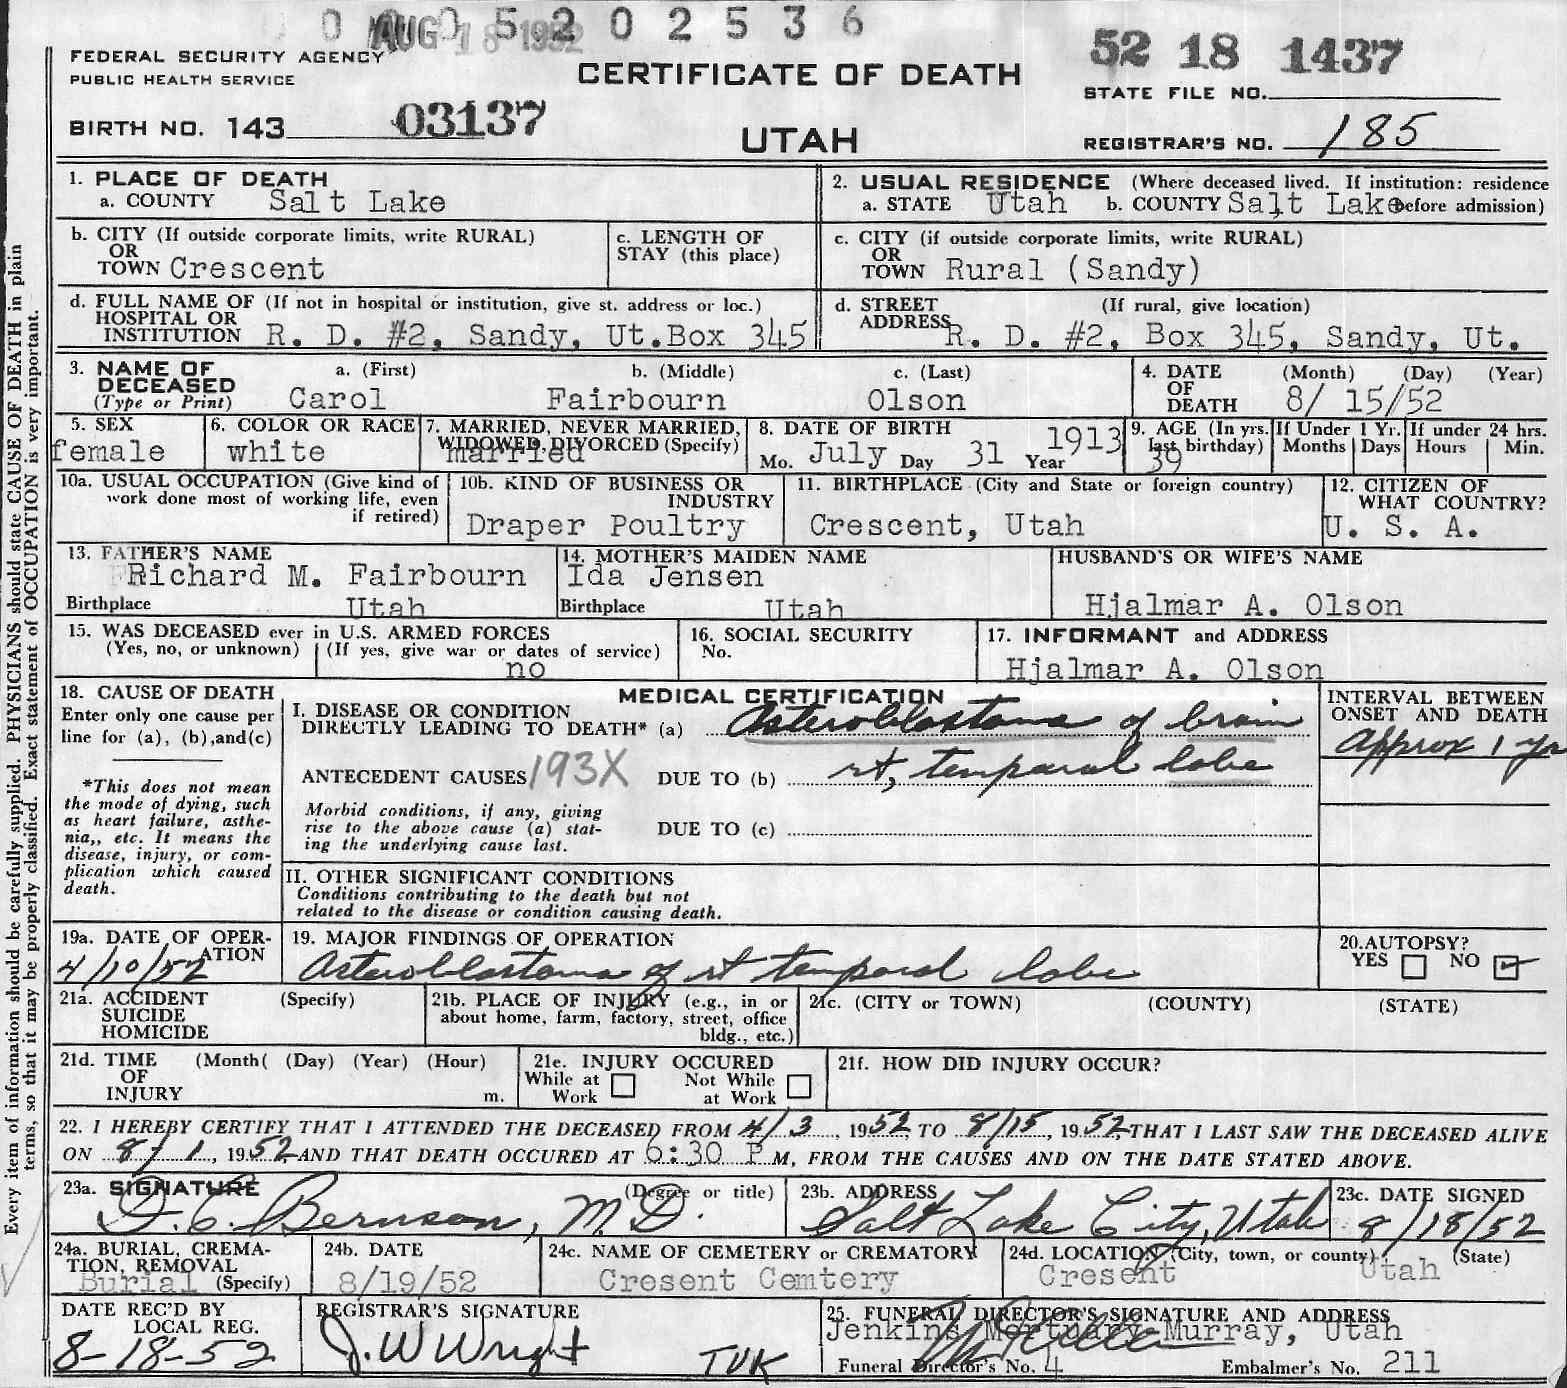 0 0 0 5 2 0 2 5 3 6
AUG 18 1952
FEDERAL SECURITY AGENCY
PUBLIC HEALTH SERVICE
CERTIFICATE OF DEATH
52 18 1437
STATE FILE NO.
BIRTH NO. 143 03137
UTAH
REGISTRAR'S NO. 185
1. PLACE OF DEATH
a. COUNTY Salt Lake
2. USUAL RESIDENCE (Where deceased lived. If institution: residence
a. STATE Utah b. COUNTY Salt Lake before admission)
b. CITY (If outside corporate limits, write RURAL)
OR
TOWN Crescent
c. LENGTH OF
STAY (this place)
c. CITY (if outside corporate limits, write RURAL)
OR
TOWN Rural (Sandy)
d. FULL NAME OF (If not in hospital or institution, give st. address or loc.)
HOSPITAL OR
INSTITUTION R. D. #2, Sandy, Ut.Box 345
d. STREET (If rural, give location)
ADDRESS R. D. #2, Box 345, Sandy, Ut.
3. NAME OF a. (First) b. (Middle) c. (Last)
DECEASED
(Type or Print) Carol Fairbourn Olson
4. DATE (Month) (Day) (Year)
OF
DEATH 8/ 15/52
5. SEX
female
6. COLOR OR RACE
white
7. MARRIED, NEVER MARRIED,
WIDOWED, DIVORCED (Specify)
married
8. DATE OF BIRTH
Mo. July Day 31 Year 1913
9. AGE (In yrs.
last birthday)
39
If Under 1 Yr.
Months Days
If under 24 hrs.
Hours Min.
10a. USUAL OCCUPATION (Give kind of
work done most of working life, even
if retired)
10b. KIND OF BUSINESS OR
INDUSTRY
Draper Poultry
11. BIRTHPLACE (City and State or foreign country)
Crescent, Utah
12. CITIZEN OF
WHAT COUNTRY?
U. S. A.
13. FATHER'S NAME
Richard M. Fairbourn
Birthplace Utah
14. MOTHER'S MAIDEN NAME
Ida Jensen
Birthplace Utah
HUSBAND'S OR WIFE'S NAME
Hjalmar A. Olson
15. WAS DECEASED ever in U.S. ARMED FORCES
(Yes, no, or unknown) (If yes, give war or dates of service)
no
16. SOCIAL SECURITY
No.
17. INFORMANT and ADDRESS
Hjalmar A. Olson
18. CAUSE OF DEATH
Enter only one cause per
line for (a), (b),and(c)
*This does not mean
the mode of dying, such
as heart failure, asthe-
nia,, etc. It means the
disease, injury, or com-
plication which caused
death.
MEDICAL CERTIFICATION
I. DISEASE OR CONDITION
DIRECTLY LEADING TO DEATH* (a) Asteroblastoma of brain
ANTECEDENT CAUSES 193X DUE TO (b) rt, temporal lobe
Morbid conditions, if any, giving
rise to the above cause (a) stat-
ing the underlying cause last.
DUE TO (c)
II. OTHER SIGNIFICANT CONDITIONS
Conditions contributing to the death but not
related to the disease or condition causing death.
INTERVAL BETWEEN
ONSET AND DEATH
Approx 1 yr
19a. DATE OF OPER-
ATION
4/10/52
19. MAJOR FINDINGS OF OPERATION
Asteroblastoma of rt temporal lobe
20.AUTOPSY?
YES NO
21a. ACCIDENT (Specify)
SUICIDE
HOMICIDE
21b. PLACE OF INJURY (e.g., in or
about home, farm, factory, street, office
bldg., etc.)
21c. (CITY or TOWN) (COUNTY) (STATE)
21d. TIME (Month( (Day) (Year) (Hour)
OF
INJURY m.
21e. INJURY OCCURED
While at Work Not While at Work
21f. HOW DID INJURY OCCUR?
22. I HEREBY CERTIFY THAT I ATTENDED THE DECEASED FROM 4/3, 1952, TO 8/15, 1952, THAT I LAST SAW THE DECEASED ALIVE
ON 8/1, 1952, AND THAT DEATH OCCURED AT 6:30 P M, FROM THE CAUSES AND ON THE DATE STATED ABOVE.
23a. SIGNATURE (Degree or title)
Bernson, M.D.
23b. ADDRESS
Salt Lake City, Utah
23c. DATE SIGNED
8/18/52
24a. BURIAL, CREMA-
TION, REMOVAL
Burial (Specify)
24b. DATE
8/19/52
24c. NAME OF CEMETERY or CREMATORY
Cresent Cemtery
24d. LOCATION (City, town, or county) (State)
Cresent Utah
DATE REC'D BY
LOCAL REG.
8-18-52
REGISTRAR'S SIGNATURE
J. W Wright TVK
25. FUNERAL DIRECTOR'S SIGNATURE AND ADDRESS
Jenkins Mortuary Murray, Utah
Funeral Director's No. 4 Embalmer's No. 211
Every item of information should be carefully supplied. PHYSICIANS should state CAUSE OF DEATH in plain
terms, so that it may be properly classified. Exact statement of OCCUPATION is very important.